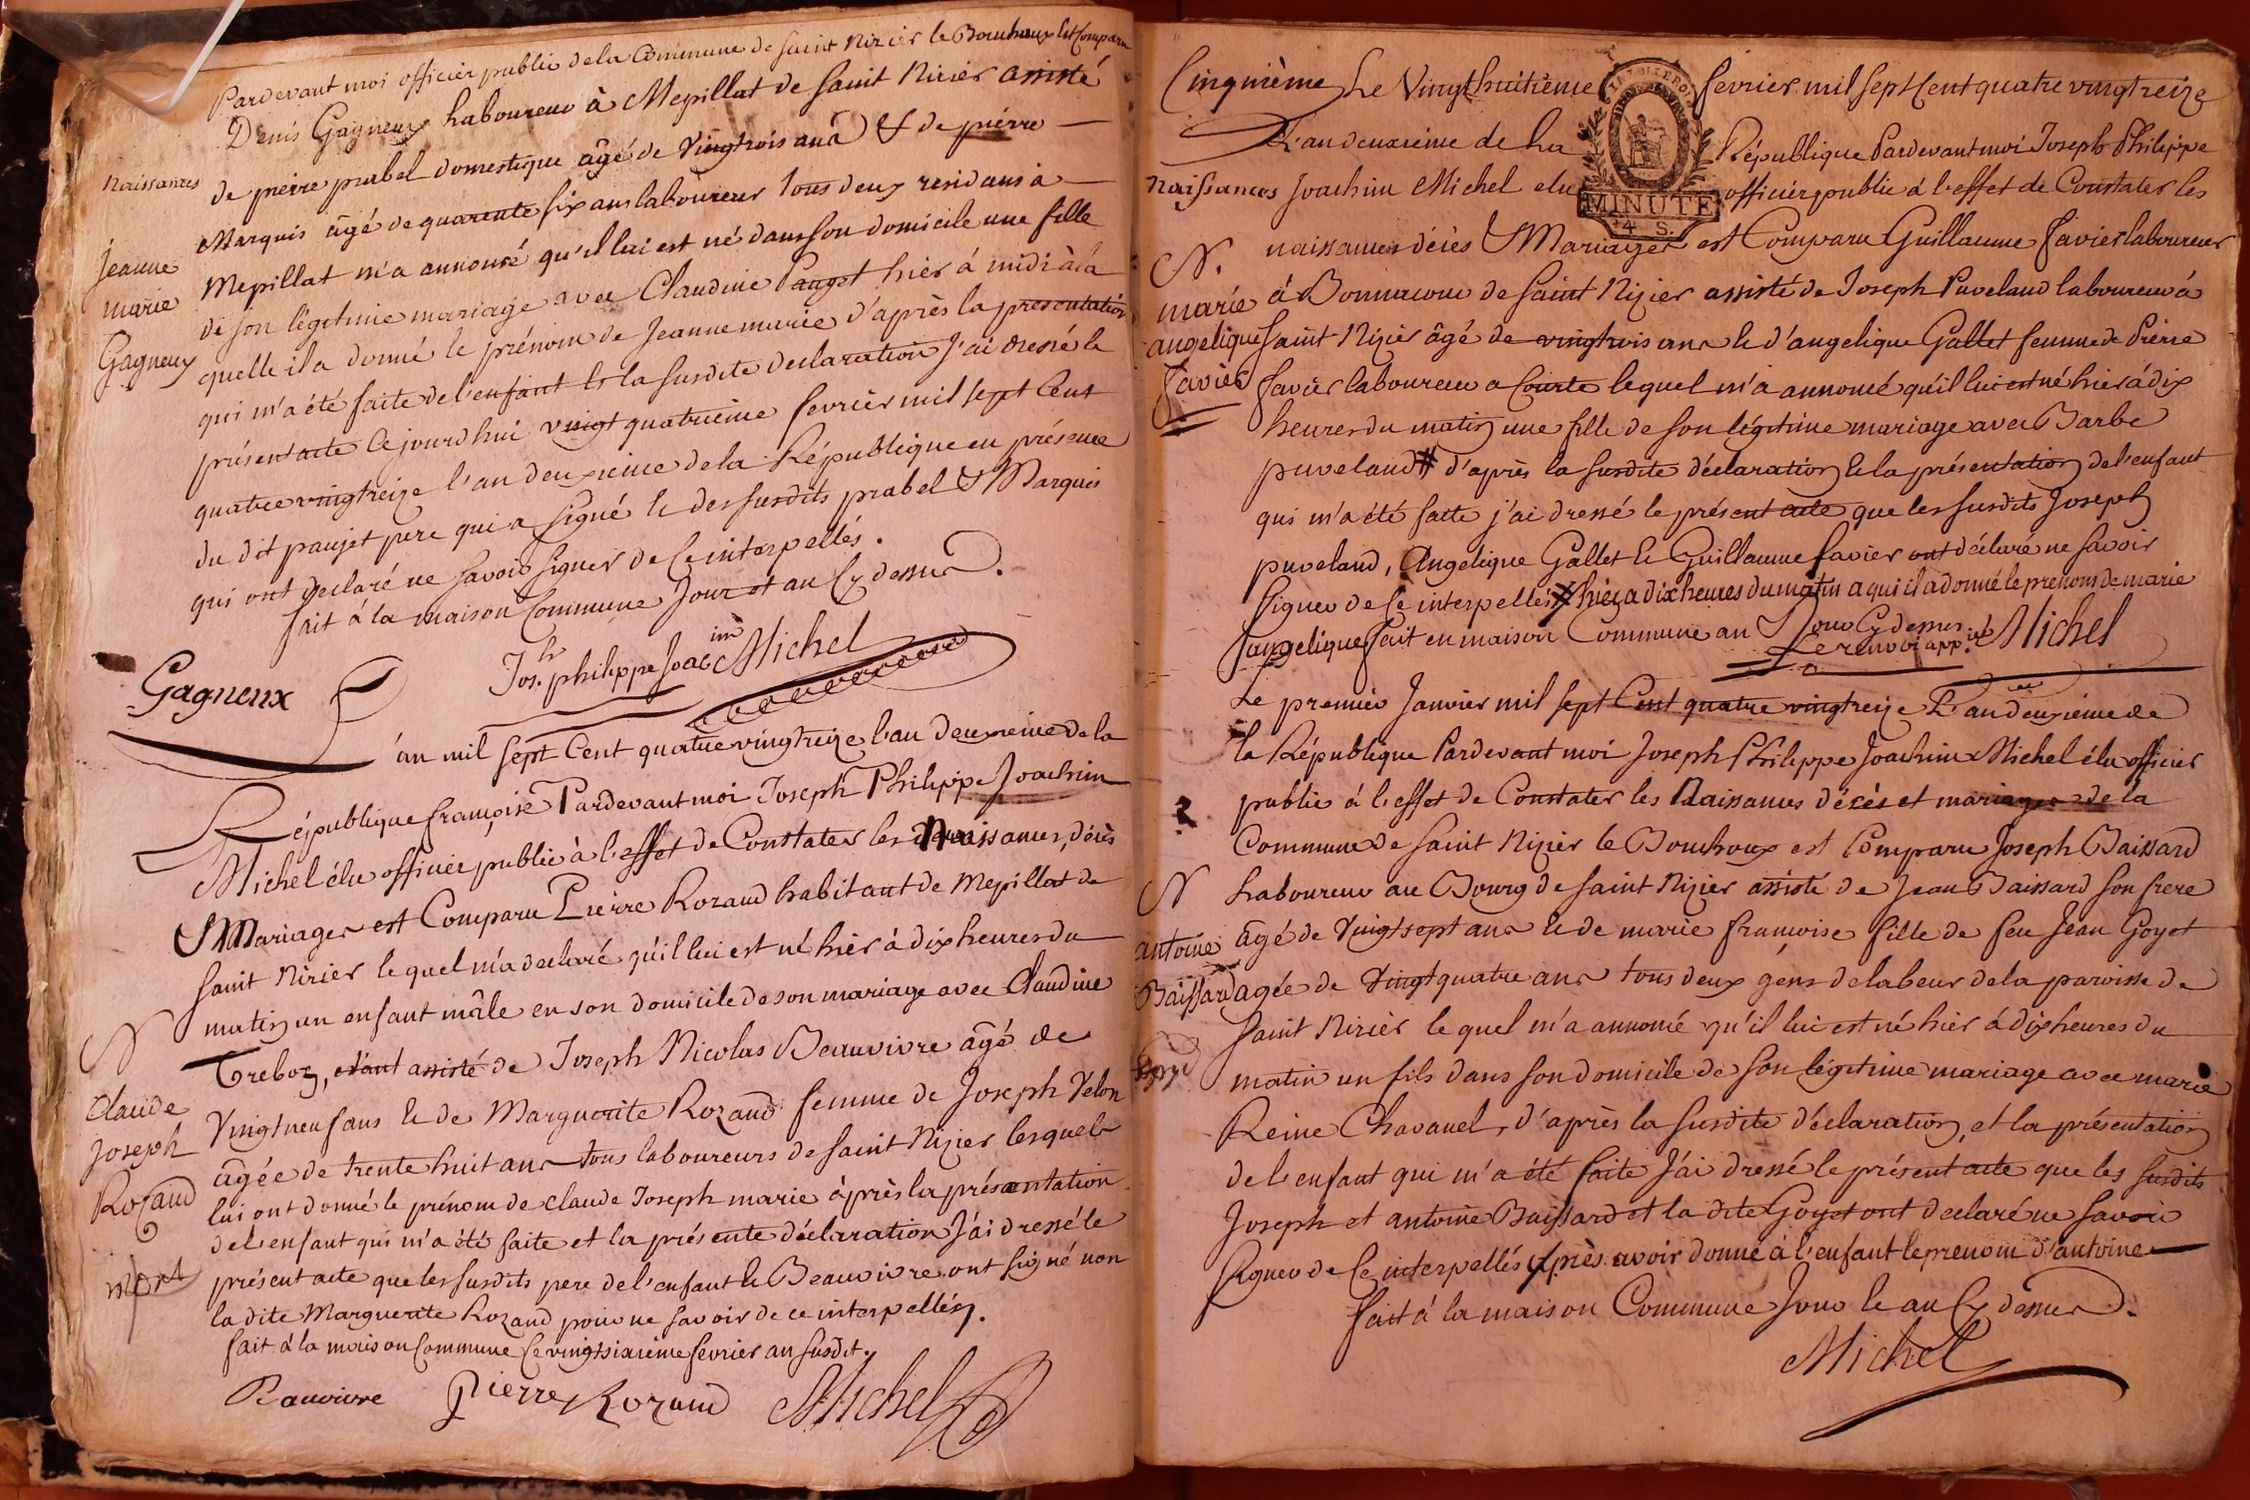 Pardevant moi officier public de la Commune de saint Nizier le Bouchoux Est Comparu
Denis Gagneux Laboureur à Mepillat de saint Nizier assisté
de pierre prabel domestique âgé de vingtrois ans & de pierre
Marquis âgé de quarente six ans laboureur tous deux residans à
Mepillat m'a annoncé qu'il lui est né dans son domicile une fille
de son légitime mariage avec Claudine Pauget hier à midi à la
quelle il a donné le prénom de Jeanne marie d'après la presentation
qui m'a été faite de l'enfant et la susdite declaration j'ai dressé le
présent acte Ce jourd'hui vingt quatrieme fevrier mil sept Cent
quatre vingtreize l'an deuxieme de la République en présence
du dit paujet pere qui a signé et des susdits prabel & Marquis
qui ont declaré ne savoir signer de Ce interpellés.
fait à la maison Commune Jour et an Cy dessus.
naissances
Jeanne
marie
Gagneux
Gagneux
Jos.ph philippe Joac.im Michel
L'an mil sept Cent quatre vingtreize l'an deuxieme de la
République françoise Pardevant moi Joseph Philippe Joachim
Michel élu officier public à l'effet de Constater les Naissances, décès
& Mariages est Comparu Pierre Rozand habitant de Mepillat de
saint Nizier le quel m'a declaré qu'il lui est né hier à dix heures du
matin un enfant mâle en son domicile de son mariage avec Claudine
Treboz, etant assisté de Joseph Nicolas Beauvivre âgé de
Vingt neuf ans et de Marguerite Rozand femme de Joseph Velon
âgée de trente huit ans tous laboureurs de saint Nizier lesquels
lui ont donné le prénom de claude Joseph marie après la présentation
de l'enfant qui m'a été faite et la présente déclaration J'ai dressé le
présent acte que les susdits pere de l'enfant et Beauvivre ont signé non
la dite Marguerite Rozand pour ne savoir de ce interpellés.
fait à la maison Commune Ce vingtsixieme fevrier an susdit.
N
Claude
Joseph
Rozand
mort
Bauvivre Pierre Rozand Michel
Cinquième Le Vingt huitieme fevrier mil sept Cent quatre vingtreize
L'an deuxieme de La République Pardevant moi Joseph Philippe
naissances Joachim Michel elu officier public à l'effet de Constater les
MINUTE
4 S.
naissances décès & Mariages est Comparu Guillaume favier laboureur
à Bonnacour de saint Nizier assisté de Joseph Puveland laboureur à
saint Nizier âgé de vingtrois ans et d'angelique Gallet femme de Pierre
favier laboureur a Courte lequel m'a annoncé qu'il lui est né hier à dix
heures du matin une fille de son légitime mariage avec Barbe
puveland # d'après la susdite déclaration et la présentation de l'enfant
qui m'a été faite j'ai dressé le présent acte que les susdits Joseph
puveland, Angelique Gallet et Guillaume favier ont déclaré ne savoir
signer de Ce interpellés # hier a dix heures du matin a qui il a donné le prenom de marie
angelique fait en maison Commune an & Jour Cy dessus
Le renvoi app.vé Michel
N.
marie
angelique
favier
Le premier Janvier mil sept Cent quatre vingtreize L'an deuxieme de
la République Pardevant moi Joseph Philippe Joachim Michel élu officier
public à l'effet de Constater les Naissances décès et mariages de la
Commune de saint Nizier le Bouchoux est Comparu Joseph Baissard
Laboureur au Bourg de saint Nizier assisté de Jean Baissard son frere
âgé de Vingt sept ans et de marie françoise fille de feu Jean Goyet
agée de vingt quatre ans tous deux gens de labeur de la paroisse de
saint Nizier le quel m'a annoncé qu'il lui est né hier à dix heures du
matin un fils dans son domicile de son légitime mariage avec marie
Reine Chavanel, d'après la susdite déclaration, et la présentation
de l'enfant qui m'a été faite J'ai dressé le présent acte que les susdits
Joseph et antoine Baissard et la dite Goyet ont declaré ne savoir
signer de Ce interpellés après avoir donné à l'enfant le prenom d'antoine
fait à la maison Commune Jour et an Cy dessus.
N
antoine
Baissard
Michel